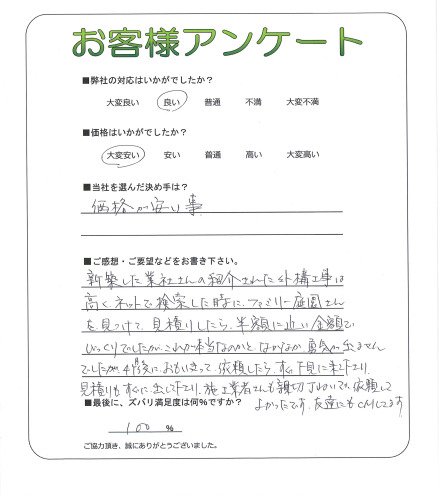 お客様アンケート
■弊社の対応はいかがでしたか?
大変良い 良い 普通 不満 大変不満
■価格はいかがでしたか?
大変安い 安い 普通 高い 大変高い
■当社を選んだ決め手は?
価格が安い事
■ご感想・ご要望などをお書き下さい。
新築した業社さんの紹介された外構工事は
高く、ネットで検索した時に、ファミリー庭園さん
を見つけて、見積りしたら、半額に近い金額で
びっくりでしたが、これが本当なのかと、なかなか勇気が出ません
でしたが、 おもいきって、依頼したら、すぐ下見に来て下さり、
見積りもすぐに出して下さり、施工業者さんも親切丁ねいで、依頼して
よかったです。友達にもCMしてます
■最後に、ズバリ満足度は何%ですか?
100 %
ご協力頂き、誠にありがとうございました。